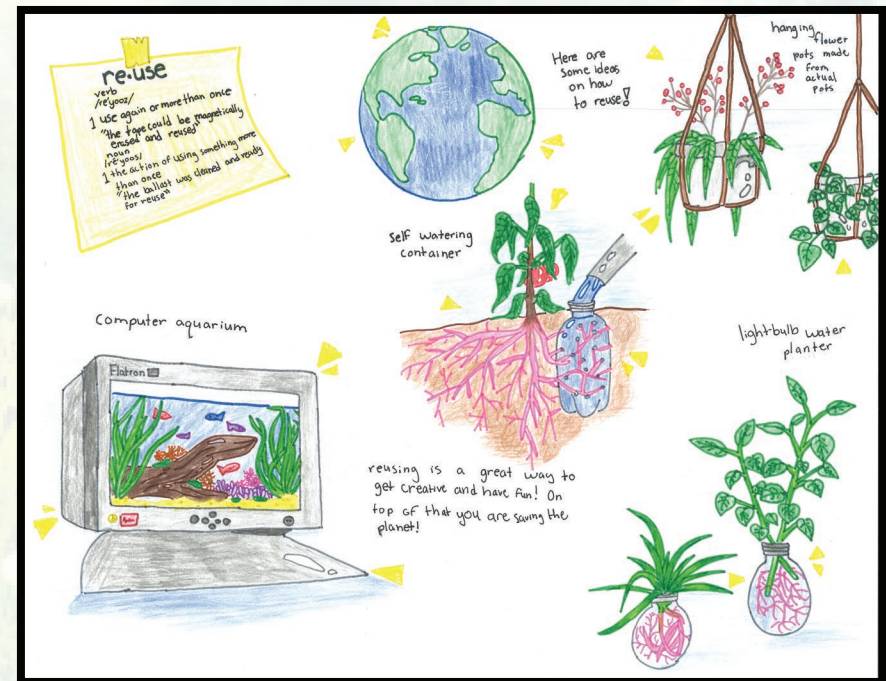 re·use
verb
/rē'yooz/
1 use again or more than once
"the tape could be magnetically
erased and reused"
noun
/rē'yoos/
1 the action of using something more
than once
"the ballast was cleaned and ready
for reuse"
Here are
some ideas
on how
to reuse!
hanging
flower
pots made
from
actual
pots
self watering
container
Computer aquarium
Flatron
lightbulb water
planter
reusing is a great way to
get creative and have fun! On
top of that you are saving the
planet!